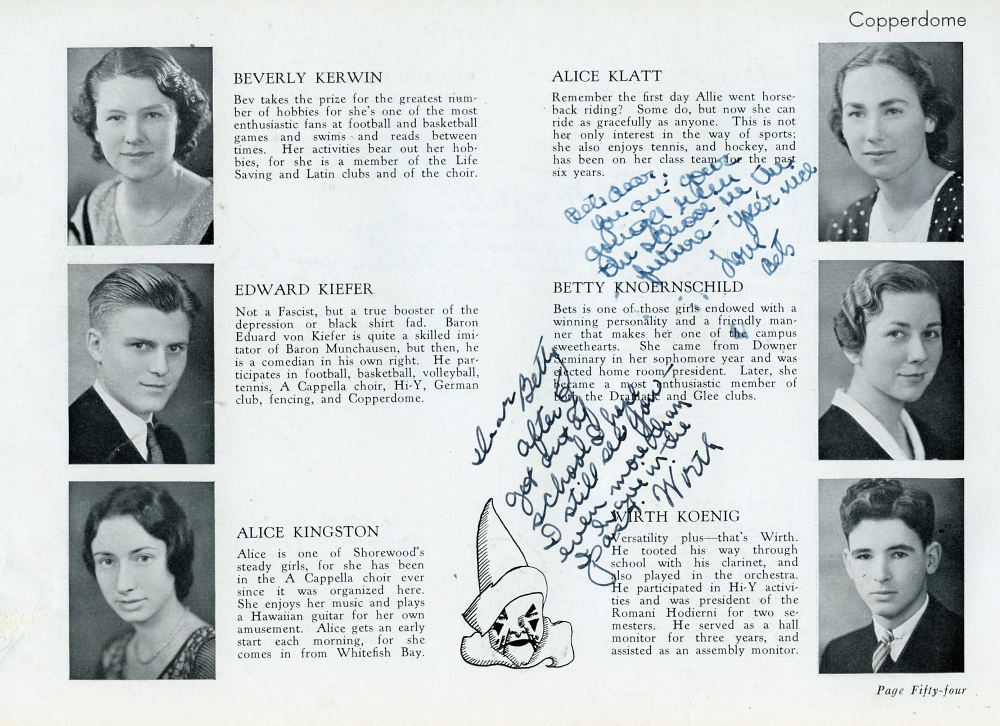 Copperdome
BEVERLY KERWIN
Bev takes the prize for the greatest num-
ber of hobbies for she's one of the most
enthusiastic fans at football and basketball
games and swims and reads between
times. Her activities bear out her hob-
bies, for she is a member of the Life
Saving and Latin clubs and of the choir.
EDWARD KIEFER
Not a Fascist, but a true booster of the
depression or black shirt fad. Baron
Eduard von Kiefer is quite a skilled imi-
tator of Baron Munchausen, but then, he
is a comedian in his own right. He par-
ticipates in football, basketball, volleyball,
tennis, A Cappella choir, Hi-Y, German
club, fencing, and Copperdome.
ALICE KINGSTON
Alice is one of Shorewood's
steady girls, for she has been
in the A Cappella choir ever
since it was organized here.
She enjoys her music and plays
a Hawaiian guitar for her own
amusement. Alice gets an early
start each morning, for she
comes in from Whitefish Bay.
ALICE KLATT
Remember the first day Allie went horse-
back riding? Some do, but now she can
ride as gracefully as anyone. This is not
her only interest in the way of sports;
she also enjoys tennis, and hockey, and
has been on her class team for the past
six years.
you
the school in the
future - your
Love
Bets
BETTY KNOERNSCHILD
Bets is one of those girls endowed with a
winning personality and a friendly man-
ner that makes her one of the campus
sweethearts. She came from Downer
Seminary in her sophomore year and was
elected home room president. Later, she
became a most enthusiastic member of
both the Dramatic and Glee clubs.
Dear Betty
after I
got out of
school I hope
I still see you
even more than
I have in the
past. Wirth
WIRTH KOENIG
Versatility plus—that's Wirth.
He tooted his way through
school with his clarinet, and
also played in the orchestra.
He participated in Hi-Y activi-
ties and was president of the
Romani Hodierni for two se-
mesters. He served as a hall
monitor for three years, and
assisted as an assembly monitor.
Page Fifty-four